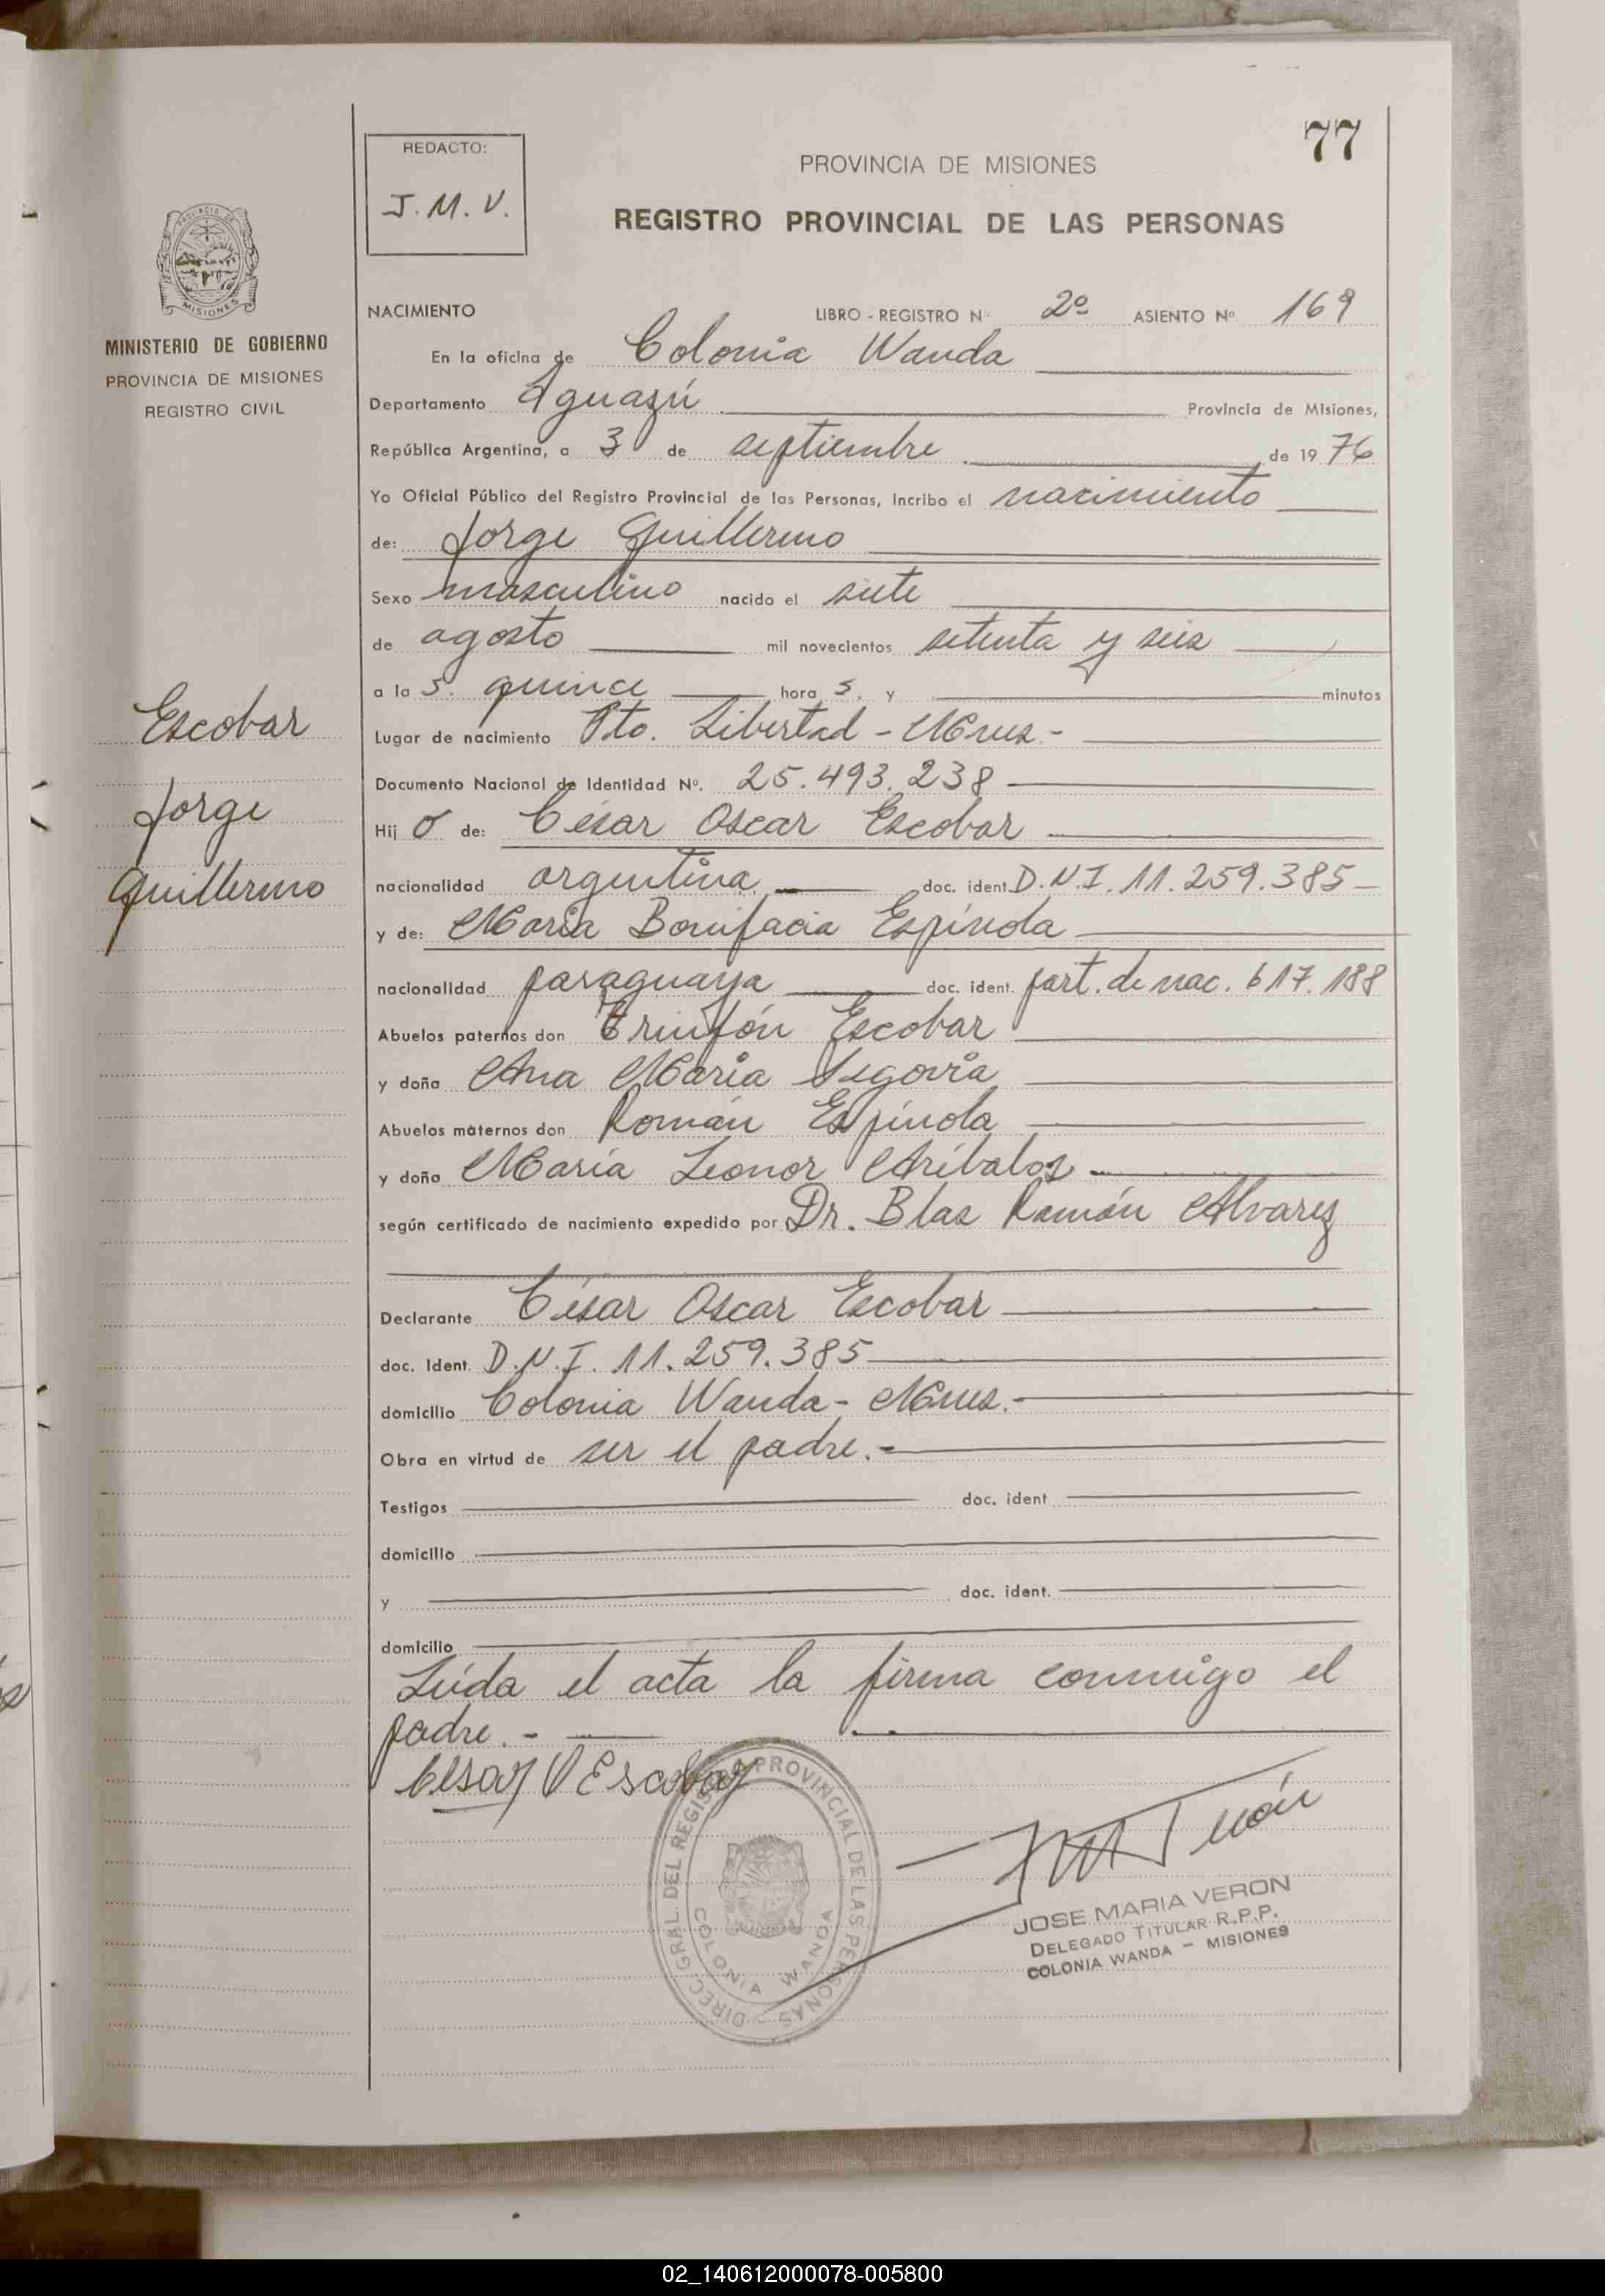 77
REDACTO:
J. M. V.
PROVINCIA DE MISIONES
REGISTRO PROVINCIAL DE LAS PERSONAS
MISIONES
MINISTERIO DE GOBIERNO
PROVINCIA DE MISIONES
REGISTRO CIVIL
Escobar
Jorge
Guillermo
NACIMIENTO LIBRO - REGISTRO Nº 2º ASIENTO Nº 169
En la oficina de Colonia Wanda
Departamento Iguazú Provincia de Misiones,
República Argentina, a 3 de septiembre de 1976
Yo Oficial Público del Registro Provincial de las Personas, incribo el nacimiento
de: Jorge Guillermo
Sexo masculino nacido el siete
de agosto mil novecientos setenta y seis
a la s. quince hora s. y minutos
Lugar de nacimiento Pto. Libertad - Mnes.-
Documento Nacional de Identidad Nº. 25.493.238
Hij o de: César Oscar Escobar
nacionalidad argentina doc. ident. D.N.I. 11.259.385
y de: María Bonifacia Espínola
nacionalidad paraguaya doc. ident. part. de nac. 617.188
Abuelos paternos don Trinfón Escobar
y doña Ana María Segovia
Abuelos maternos don Román Espínola
y doña María Leonor Aríbalos
según certificado de nacimiento expedido por Dr. Blas Ramón Alvarez
Declarante César Oscar Escobar
doc. Ident. D.N.I. 11.259.385
domicilio Colonia Wanda - Mnes.-
Obra en virtud de ser el padre.-
Testigos doc. ident
domicilio
y doc. ident.
domicilio
Leída el acta la firma conmigo el
padre.-
Cesar O Escobar
DIREC. GRAL. DEL REGISTRO PROVINCIAL DE LAS PERSONAS
COLONIA WANDA
JOSE MARIA VERON
DELEGADO TITULAR R.P.P.
COLONIA WANDA - MISIONES
02_140612000078-005800